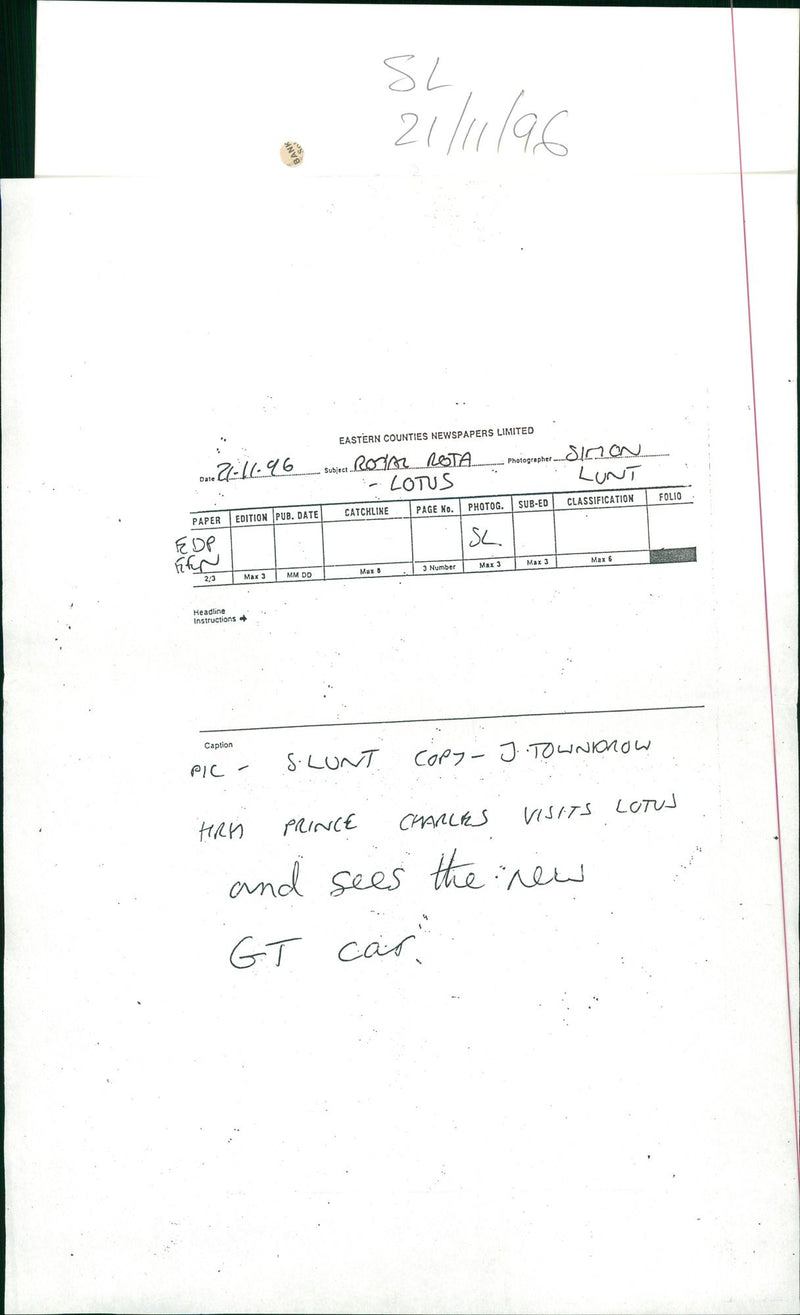 SL
21/11/96
BANK
EASTERN COUNTIES NEWSPAPERS LIMITED
Date 21-11-96 Subject ROYAL ROTA Photographer SIMON
- LOTUS LUNT
PAPER EDITION PUB. DATE CATCHLINE PAGE No. PHOTOG. SUB-ED CLASSIFICATION FOLIO
EDP SL
EEN
2/3 Max 3 MM DD Max 8 3 Number Max 3 Max 3 Max 6
Headline
Instructions
Caption
PIC - S.LUNT COPY - J.TOWNDROW
HRH PRINCE CHARLES VISITS LOTUS
and sees the new
GT car.